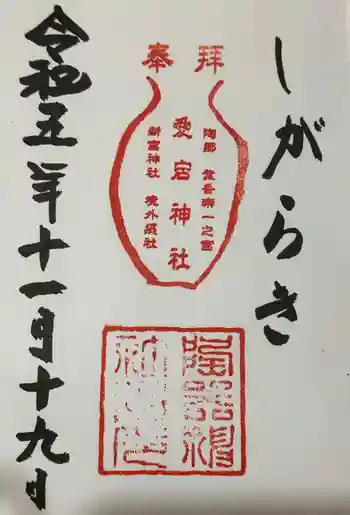 奉拝
しがらき
陶郷 紫香楽一之宮
愛宕神社
新宮神社 境外摂社
令和五年十一月十九日